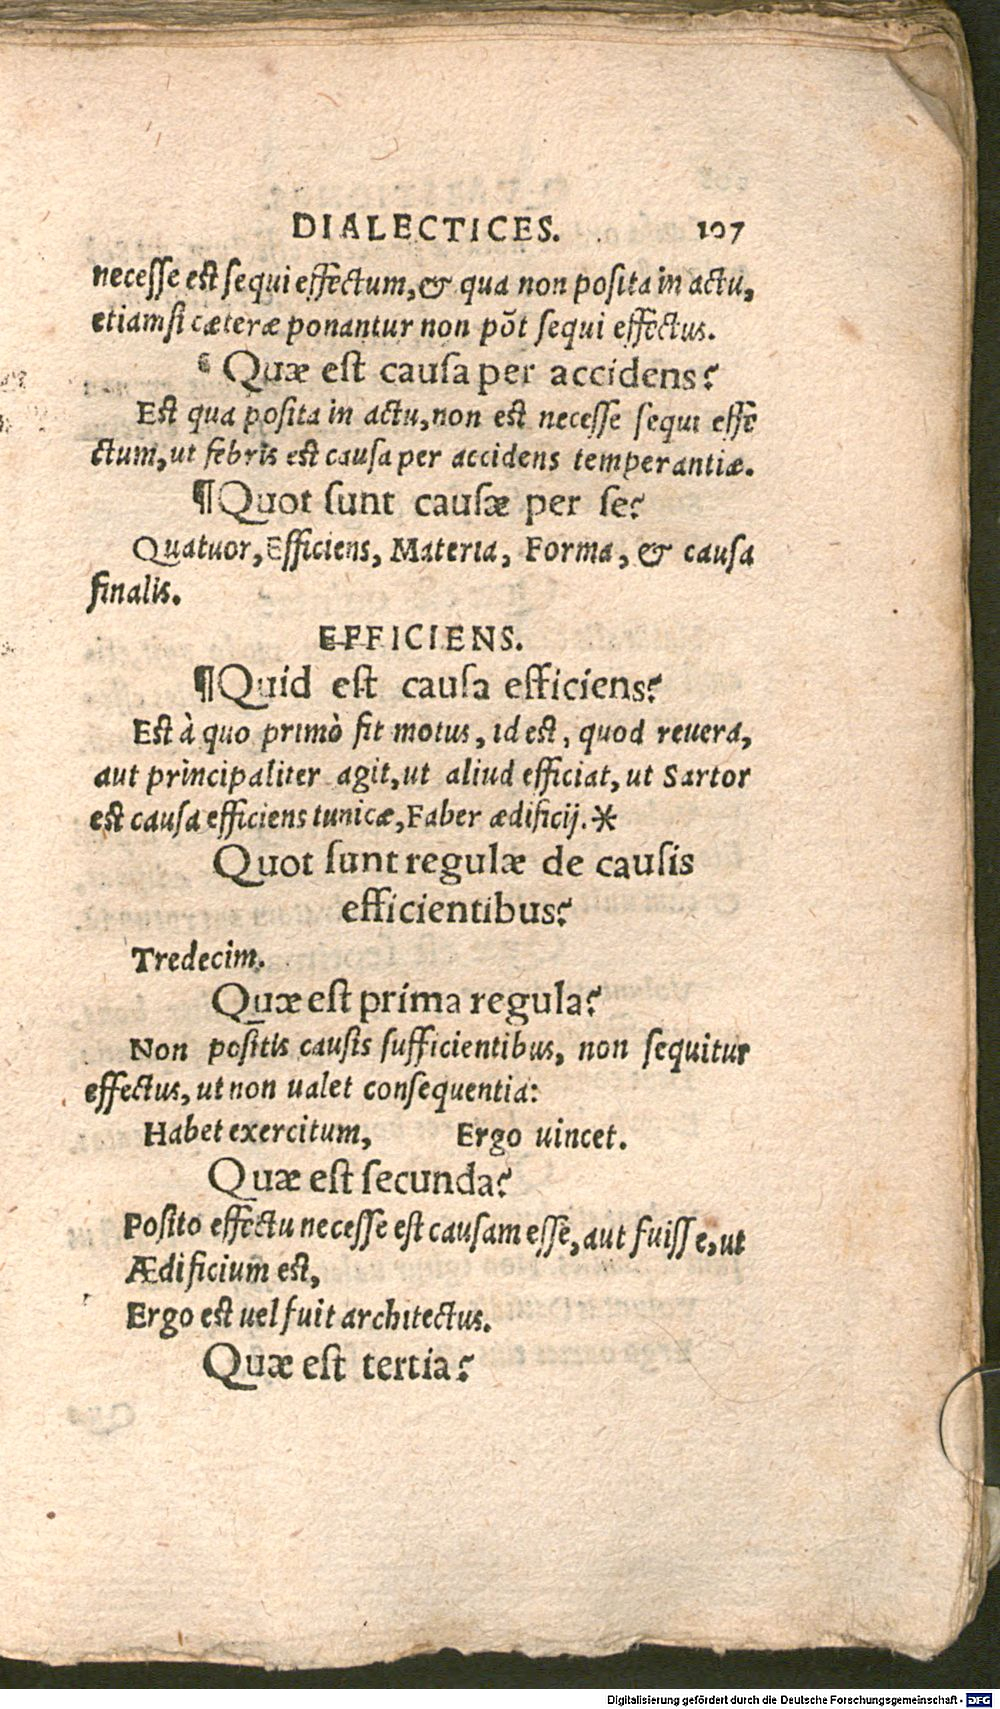 DIALECTICES. 107
necesse est sequi effectum, & qua non posita in actu,
etiamsi cæteræ ponantur non põt sequi effectus.
¶ Quæ est causa per accidens?
Est qua posita in actu, non est necesse sequi effe
ctum, ut febris est causa per accidens temperantiæ.
¶Quot sunt causæ per se?
Quatuor, Efficiens, Materia, Forma, & causa
finalis.
EFFICIENS.
¶Quid est causa efficiens?
Est à quo primò fit motus, id est, quod reuera,
aut principaliter agit, ut aliud efficiat, ut Sartor
est causa efficiens tunicæ, Faber ædificij.*
Quot sunt regulæ de causis
efficientibus?
Tredecim.
Quæ est prima regula?
Non positis causis sufficientibus, non sequitur
effectus, ut non ualet consequentia:
Habet exercitum, Ergo uincet.
Quæ est secunda?
Posito effectu necesse est causam esse, aut fuisse, ut
Ædificium est,
Ergo est uel fuit architectus.
Quæ est tertia?
Digitalisierung gefördert durch die Deutsche Forschungsgemeinschaft - DFG